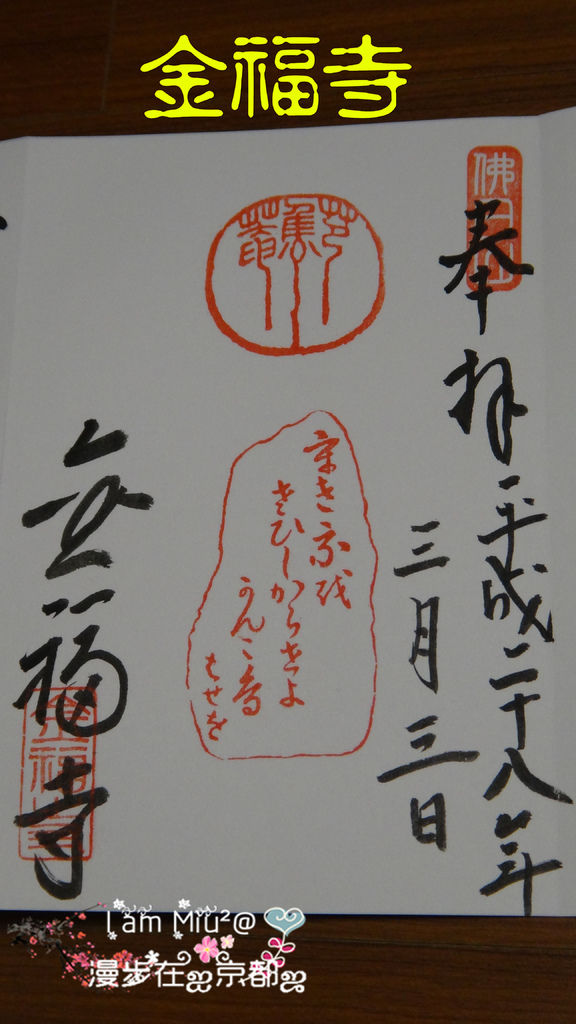 金福寺
佛日山
奉拝
平成二十八年
三月三日
芭蕉
うき我を
さひしからせよ
かんこ鳥
はせを
金福寺
金福寺
Lam Miu²@
漫步在ஐ京都ஐ